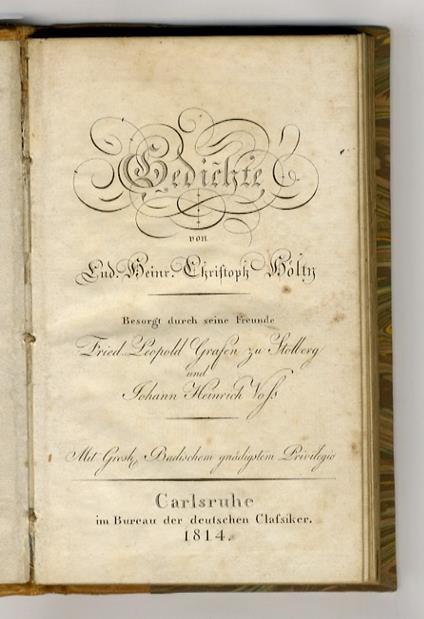 Gedichte
von
Lud. Heinr. Christoph Hölty
Besorgt durch seine Freunde
Fried. Leopold Grafen zu Stolberg
und
Johann Heinrich Voſs
Mit Grosh. Badischem gnädigstem Privilegio
Carlsruhe
im Bureau der deutschen Claſsiker.
1814.